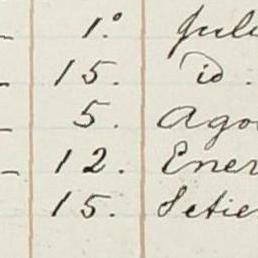 1.º Juli
15. id.
5. Ago
12. Ener
15. Setie